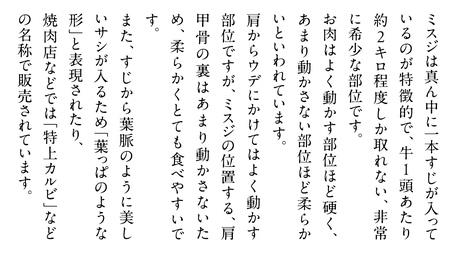 ミスジは真ん中に一本すじが入って
いるのが特徴的で、牛1頭あたり
約2キロ程度しか取れない、非常
に希少な部位です。
お肉はよく動かす部位ほど硬く、
あまり動かさない部位ほど柔らか
いといわれています。
肩からウデにかけてはよく動かす
部位ですが、ミスジの位置する、肩
甲骨の裏はあまり動かさないた
め、柔らかくとても食べやすいで
す。
また、すじから葉脈のように美し
いサシが入るため「葉っぱのような
形」と表現されたり、
焼肉店などでは「特上カルビ」など
の名称で販売されています。